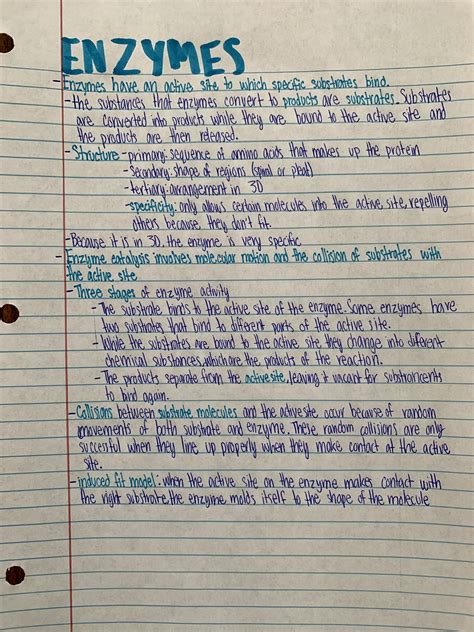 ENZYMES
- Enzymes have an active site to which specific substrates bind.
- the substances that enzymes convert to products are substrates. Substrates
are converted into products while they are bound to the active site and
the products are then released.
- Structure - primary: sequence of amino acids that makes up the protein
- Secondary: shape of regions (spiral or pleat)
- tertiary: arrangement in 3D
- specificity: only allows certain molecules into the active site, repelling
others because they don't fit.
- Because it is in 3D, the enzyme is very specific
- Enzyme catalysis involves molecular motion and the collision of substrates with
the active site
- Three stages of enzyme activity
- The substrate binds to the active site of the enzyme. Some enzymes have
two substrates that bind to different parts of the active site.
- While the substrates are bound to the active site they change into different
chemical substances, which are the products of the reaction.
- The products separate from the active site, leaving it vacant for
to bind again.
- Collisions between substrate molecules and the active site occur because of random
movements of both substrate and enzyme. These random collisions are only
succesful when they line up properly when they make contact at the active
site.
- induced fit model: when the active site on the enzyme makes contact with
the right substrate, the enzyme molds itself to the shape of the molecule